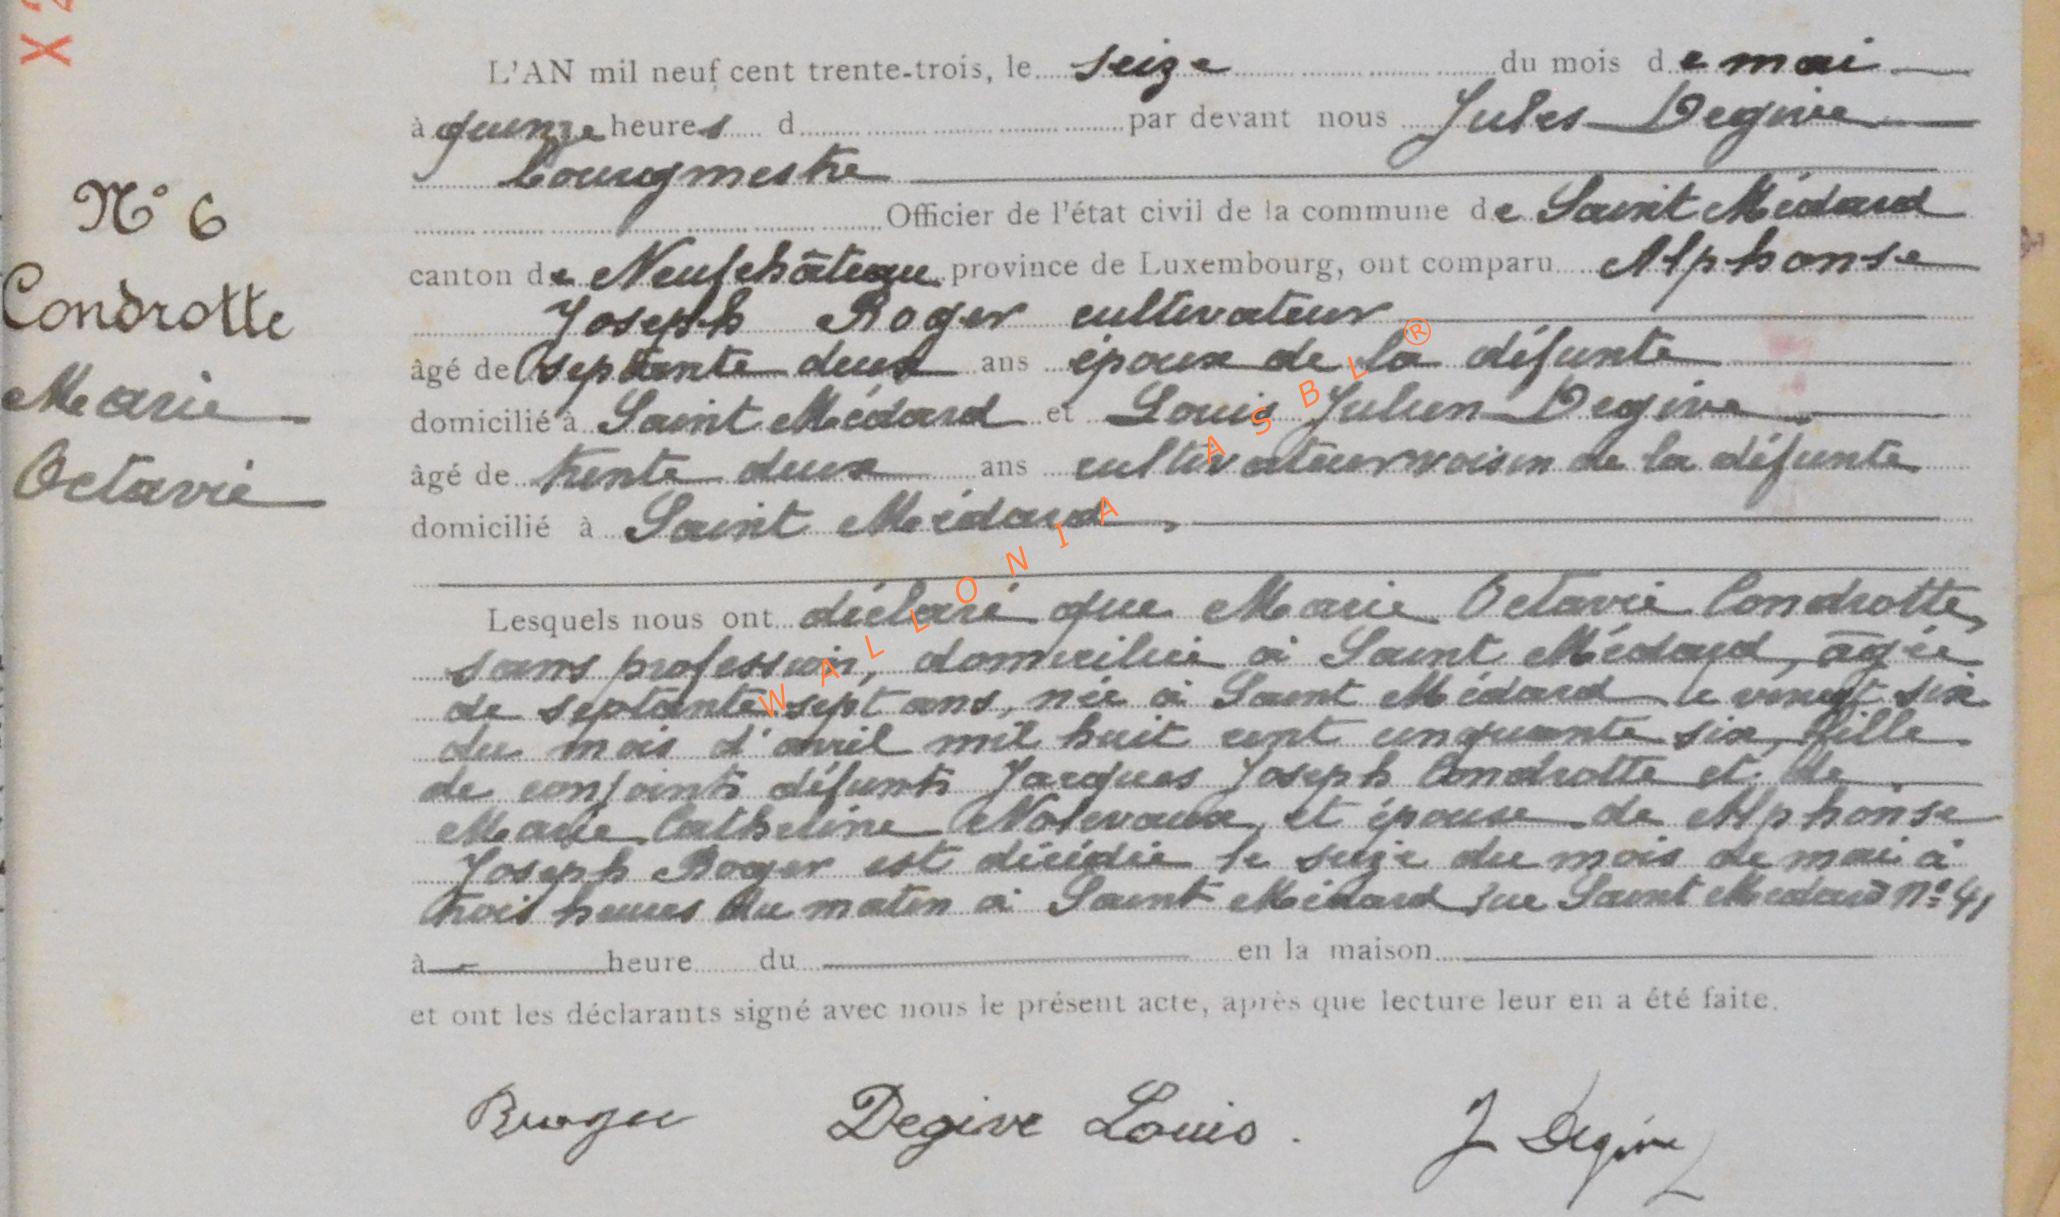 L'AN mil neuf cent trente-trois, le seize du mois de mai
à quinze heures d par devant nous Jules Degive
bourgmestre
Officier de l'état civil de la commune de Saint Médard
canton de Neufchâteau province de Luxembourg, ont comparu Alphonse
Joseph Roger cultivateur
âgé de septante deux ans époux de la défunte
domicilié à Saint Médard et Louis Julien Degive
âgé de trente deux ans cultivateur voisin de la défunte
domicilié à Saint Médard,
Lesquels nous ont déclaré que Marie Octavie Condrotte,
sans profession, domiciliée à Saint Médard, âgée
de septante sept ans, née à Saint Médard le vingt six
du mois d'avril mil huit cent cinquante six, fille
de conjoints défunts Jacques Joseph Condrotte et de
Marie Catherine Nolevaux, et épouse de Alphonse
Joseph Roger est décédée le seize du mois de mai à
trois heures du matin à Saint Médard, rue Saint Médard n° 41
à heure du en la maison
et ont les déclarants signé avec nous le présent acte, après que lecture leur en a été faite.
Degive Louis. J Degive
N° 6
Condrotte
Marie
Octavie
WALLONIA ASBL ®